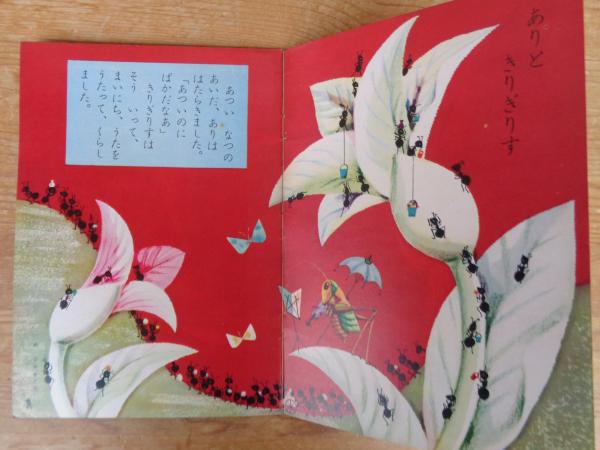 ありと
きりぎりす
あつい なつの
あいだ、ありは
はたらきました。
「あついのに
ばかだなあ」
きりぎりすは
そう いって、
まいにち、うたを
うたって、くらし
ました。